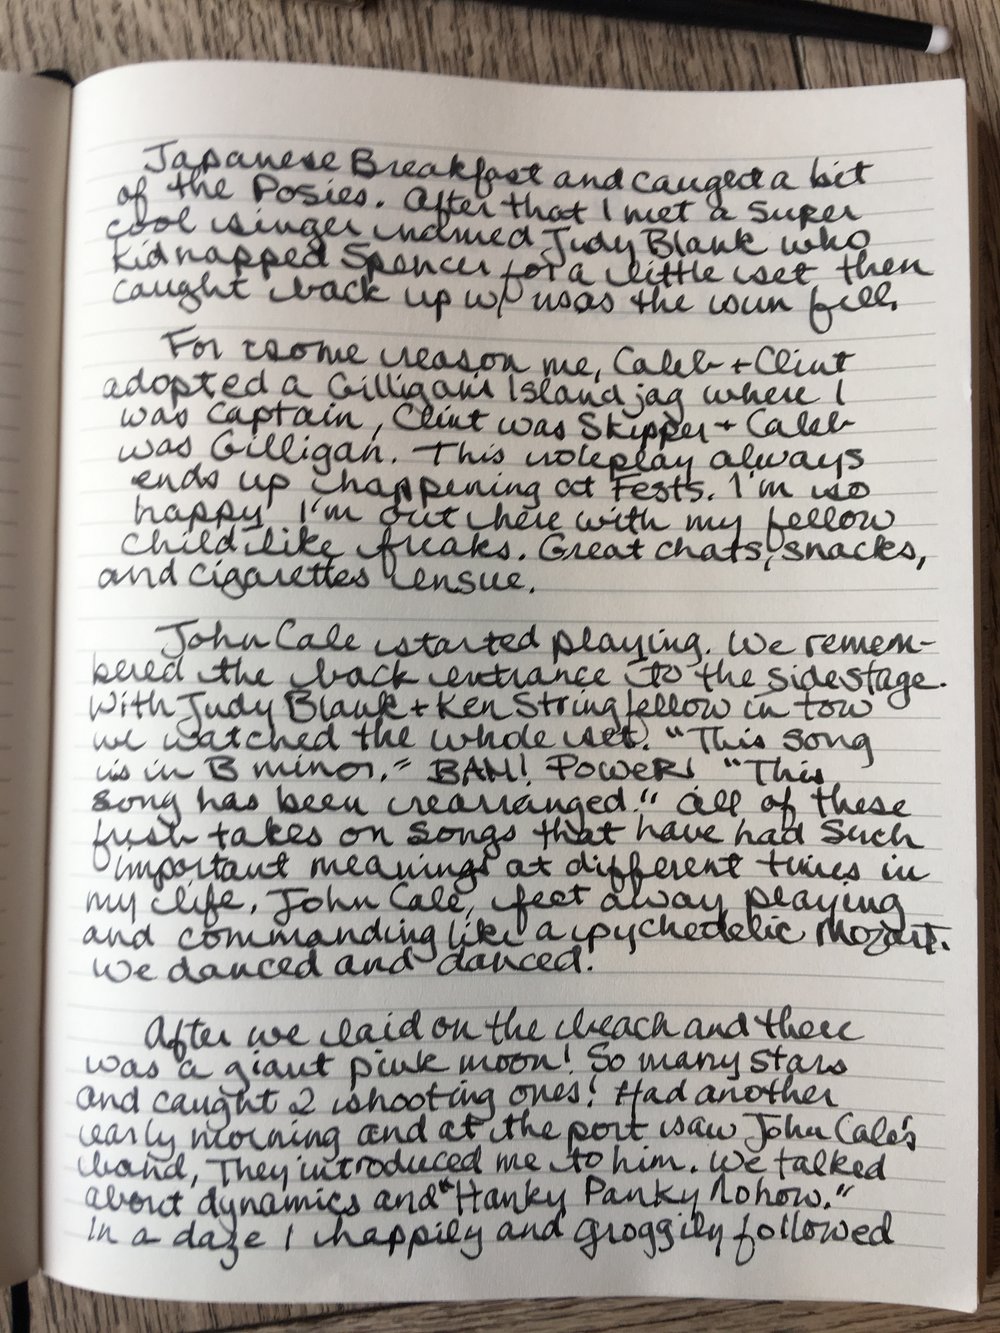 Japanese Breakfast and caught a bit
of the Posies. After that I met a super
cool singer named Judy Blank who
kidnapped Spencer for a little set then
caught back up w/ us as the sun fell.
For some reason me, Caleb + Clint
adopted a Gilligan's Island jag where I
was Captain, Clint was Skipper + Caleb
was Gilligan. This roleplay always
ends up happening at Fests. I'm so
happy I'm out here with my fellow
childlike freaks. Great chats, snacks,
and cigarettes ensue.
John Cale started playing. We remem-
bered the back entrance to the sidestage.
With Judy Blank + Ken Stringfellow in tow
we watched the whole set. "This song
is in B minor." BAM! POWER! "This
song has been rearranged." All of these
fresh takes on songs that have had such
important meanings at different times in
my life. John Cale, feet away playing
and commanding like a psychedelic Mozart.
We danced and danced!
After we laid on the beach and there
was a giant pink moon! So many stars
and caught 2 shooting ones! Had another
early morning and at the port saw John Cale's
band, They introduced me to him. We talked
about dynamics and "Hanky Panky Nohow."
In a daze I happily and groggily followed